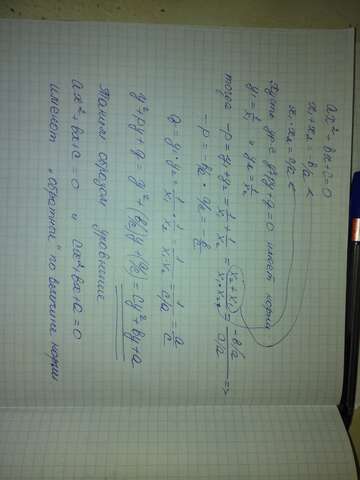 ax² + bx + c = 0
x₁ + x₂ = -b/a <
x₁ · x₂ = c/a <
Пусть ур-е y² + py + q = 0 имеет корни
y₁ = 1/x₁ и y₂ = 1/x₂
тогда -p = y₁ + y₂ = 1/x₁ + 1/x₂ = (x₂ + x₁)/(x₁ · x₂) = (-b/a)/(c/a) =>
-p = -b/a · a/c = -b/c
q = y₁ · y₂ = 1/x₁ · 1/x₂ = 1/(x₁ · x₂) = 1/(c/a) = a/c
y² + py + q = y² + (b/c)y + (a/c) = cy² + by + a
Таким образом уравнение
ax² + bx + c = 0 и cx² + bx + a = 0
имеют „обратные" по величине корни